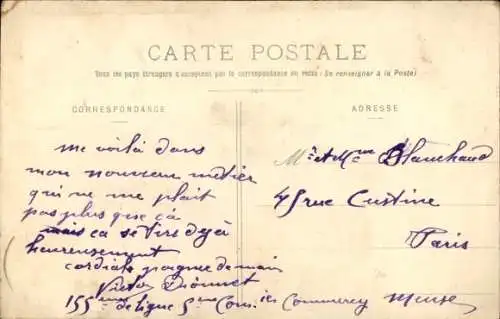 CARTE POSTALE
Tous les pays étrangers n'acceptent pas la correspondance au recto (Se renseigner à la Poste)
CORRESPONDANCE
ADRESSE
me voilà dans
mon nouveau métier
qui ne me plait
pas plus que ça
mais ça se tire déjà
heureusement
cordiale poignée de main
Victor
155ème de ligne 5ème Commercy Meuse
Mr et Mme Blanchaud
45 rue Custine
Paris